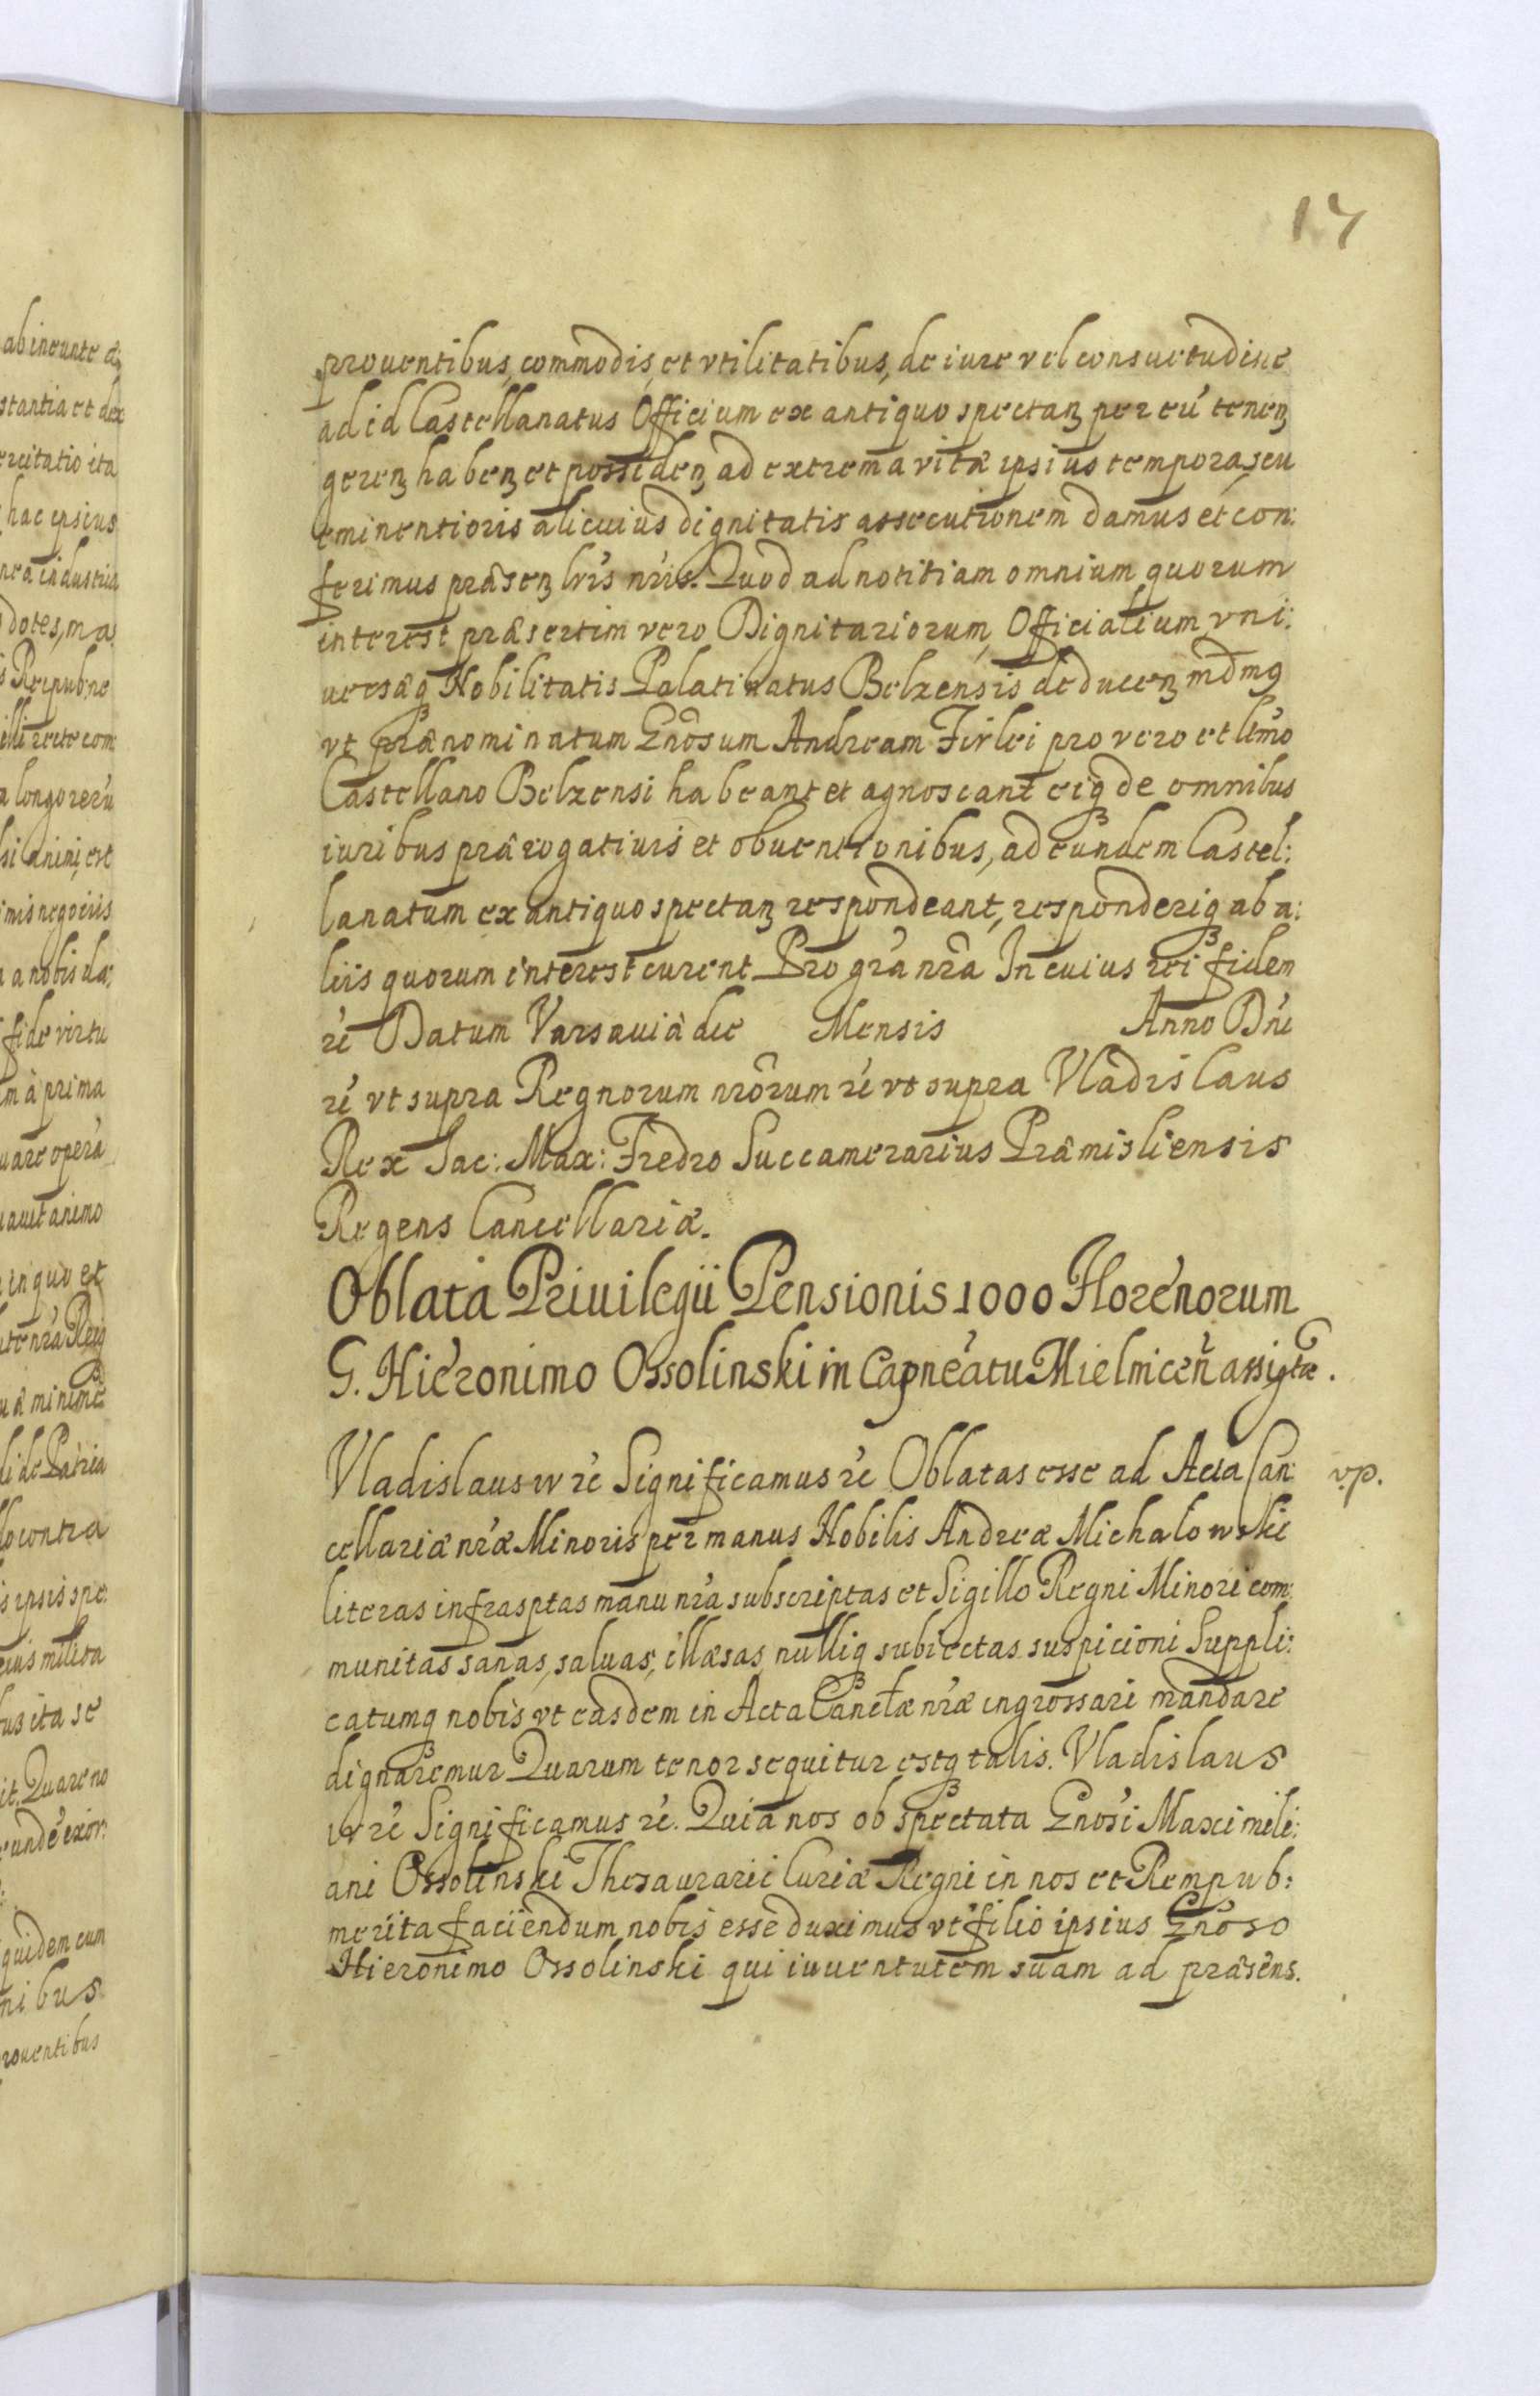 17
prouentibus, commodis, et vtilitatibus, de iure vel consuetudine
ad id Castellanatus Officium ex antiquo spectanꝫ per eú tenenꝫ
gerenꝫ habenꝫ et possidenꝫ ad extrema vitæ ipsius tempora, seu
eminentioris alicuius dignitatis assecutionem damus et con:
ferimus præsenꝫ lrís nrís. Quod ad notitiam omnium quorum
interest præsertim vero Dignitariorum, Officialium vni:
uersæqꝫ Nobilitatis Palatinatus Belzensis deducenꝫ mdmꝰ
vt prænominatum Gnosum Andream Firlei pro vero et ltmo
Castellano Belzensi habeant et agnoscant eiqꝫ de omnibus
iuribus prærogatiuis et obuentionibus, ad eundem Castel:
lanatum ex antiquo spectanꝫ respondeant, responderiqꝫ ab a:
liis quorum interest curent Pro gra nra In cuius rei fidem
ré Datum Varsauiæ die Mensis Anno Dni
ré vt supra Regnorum nrorum ré vt supra Vladislaus
Rex Jac: Max: Fredro Succamerarius Præmisliensis
Regens Cancellariæ.
Oblata Priuilegii Pensionis 1000 Florenorum
G. Hieronimo Ossolinski in Capneatu Mielnicen̄ assigtæ.
Vladislaus IV ré Significamus ré Oblatas esse ad Acta Can:
v.p.
cellariæ nræ Minoris per manus Nobilis Andreæ Michalowski
literas infrasptas manu nra subscriptas et Sigillo Regni Minori com:
munitas sanas, saluas, illæsas nulliqꝫ subiectas suspicioni Suppli:
catumqꝫ nobis vt easdem in Acta Cancłæ nræ ingrossari mandare
dignaremur Quarum tenor sequitur estqꝫ talis. Vladislaus
IV ré Significamus ré. Quia nos ob spectata Gnosi Maximili:
ani Ossolinski Thesaurarii Curiæ Regni in nos et Rempub:
merita faciendum nobis esse duximus vt filio ipsius Gnoso
Hieronimo Ossolinski qui iuuentutem suam ad præsens.